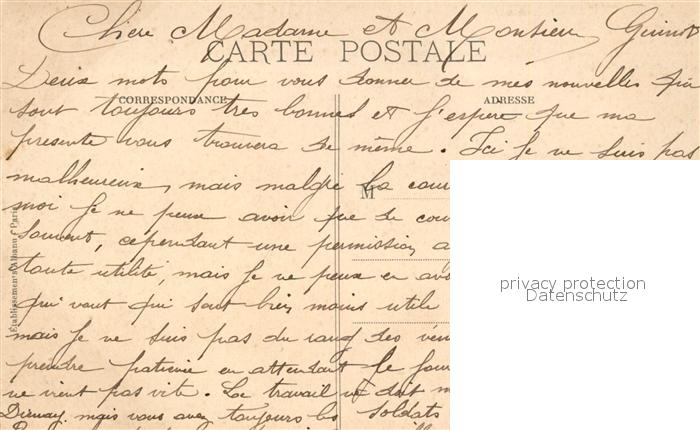 Chère Madame et Monsieur Guinot
CARTE POSTALE
Deux mots pour vous donner de mes nouvelles qui
CORRESPONDANCE
ADRESSE
sont toujours très bonnes et j'espère que ma
presente vous trouvera de même. Ici je ne suis pas
malheureux, mais malgré la cour
M
moi je ne peux avoir que de cou
souvent, cependant une permission a
toute utilité, mais je ne peux en avo
qui vont qui sont bien moins utile
mais je ne suis pas du rang des
prendre patience en attendant le jour
ne vient pas vite. Le travail doit
mais vous avez toujours les soldats
privacy protection
Datenschutz